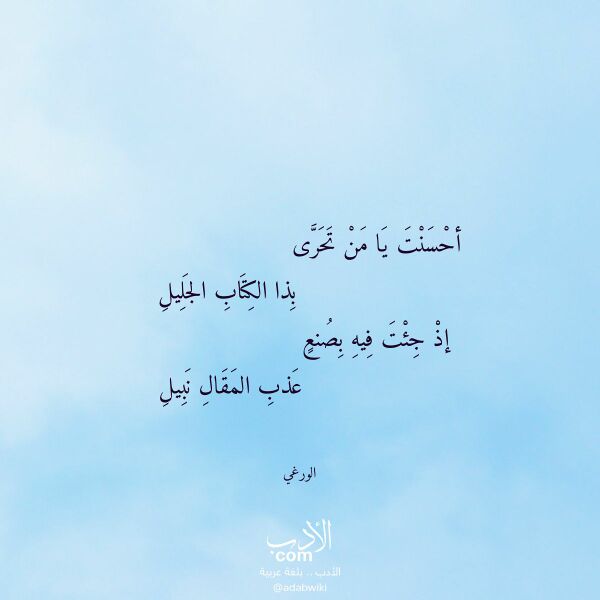 أحْسَنْتَ يَا مَنْ تَحَرَّى
بِذا الكِتَابِ الجَلِيلِ
إذْ جِئْتَ فِيهِ بِصُنعٍ
عَذبِ المَقَالِ نَبِيلِ
الورغي
الأدب
com
الأدب .. بلغة عربية
@adabwiki